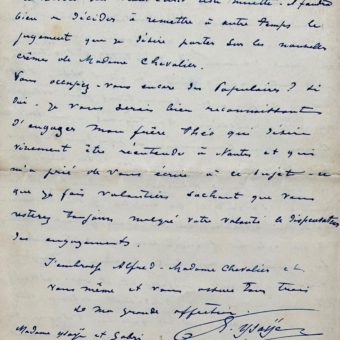 bien se décider à remettre à autre temps le
jugement que je désire porter sur les nouvelles
crèmes de Madame Chevalier.
Vous occupez-vous encore des Populaires ? Si
oui, je vous serais bien reconnaissant
d'engager mon frère Théo qui désire
vivement être réentendu à Nantes et qui
m'a prié de vous écrire à ce sujet - ce
que je fais volontiers sachant que vous
resterez toujours malgré votre volonté le dispensateur
des engagements.
J'embrasse Alfred - Madame Chevalier et
vous même et vous assure tous trois
de ma grande affection.
E. Ysaÿe
Madame Ysaÿe et Gabri